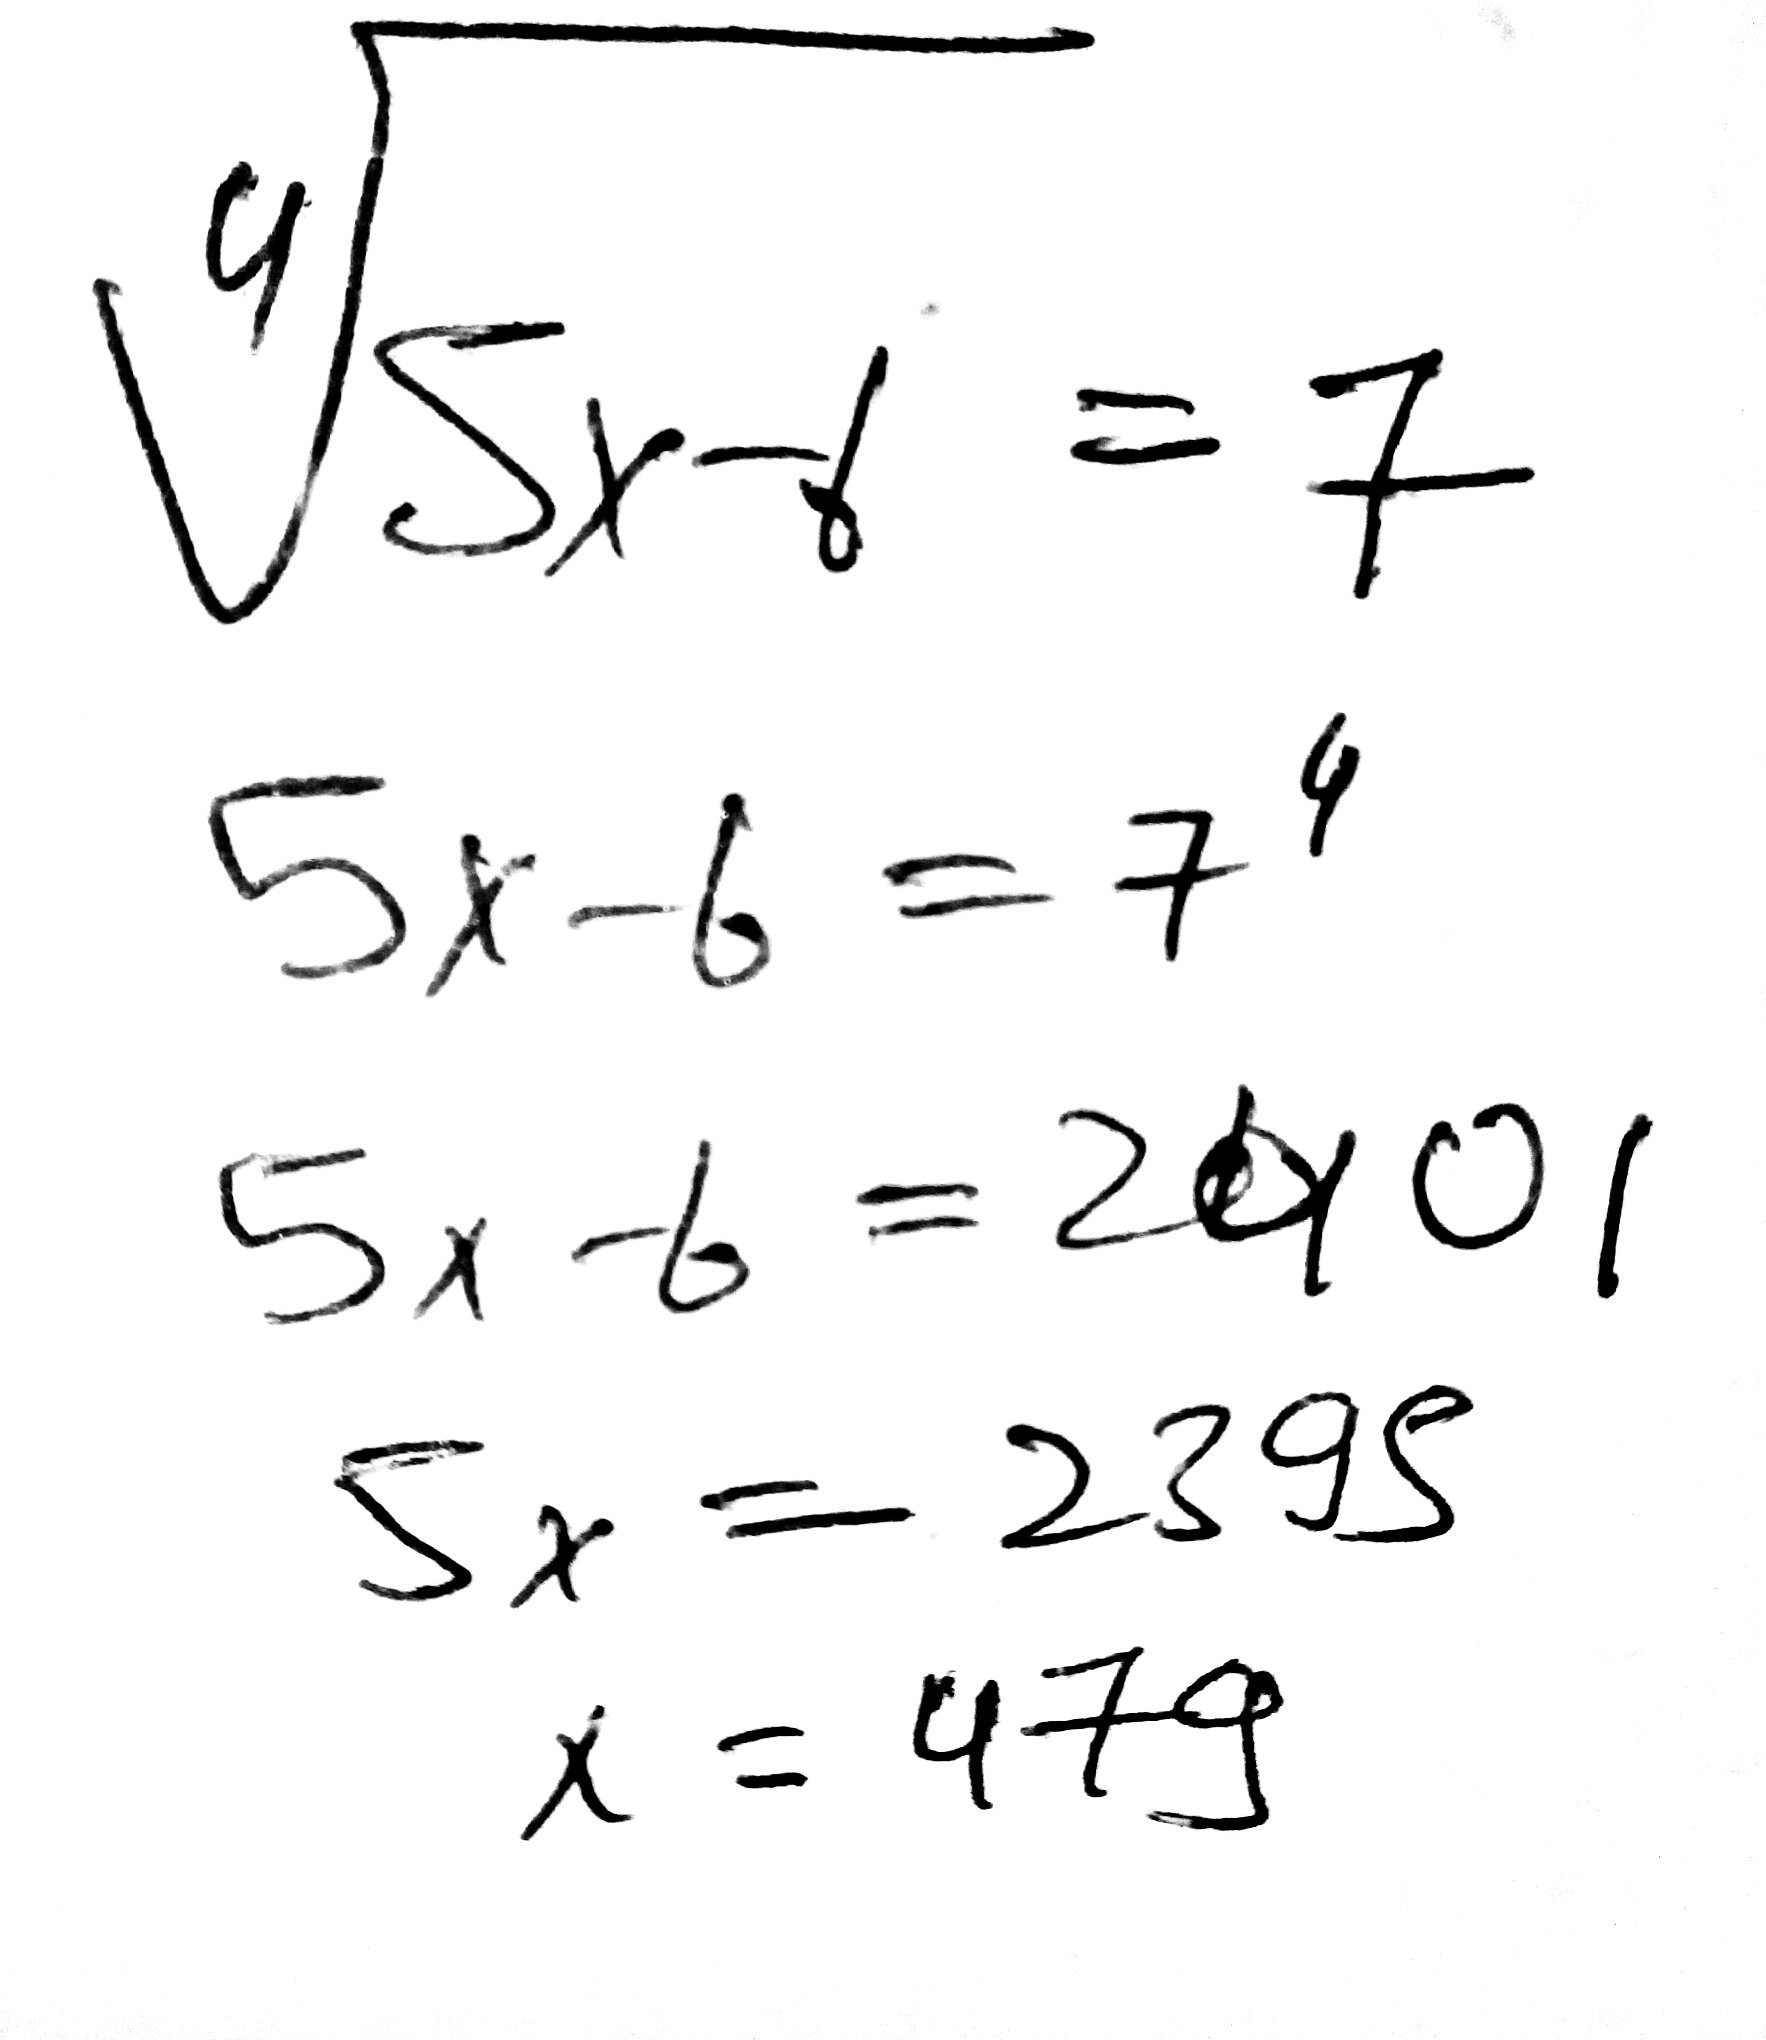 ∜(5x-6) = 7
5x-6 = 7⁴
5x-6 = 2401
5x = 2395
x = 479